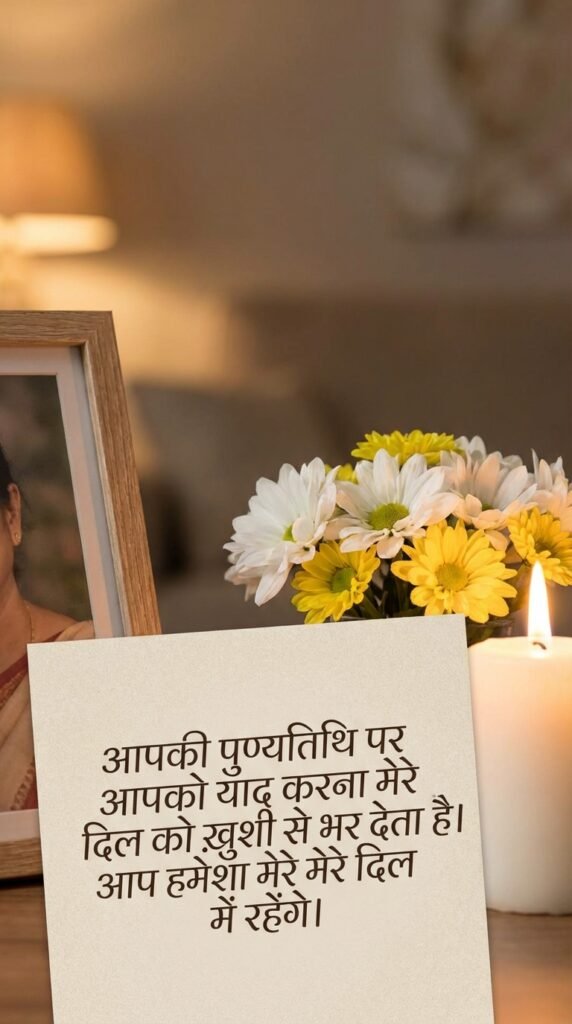 आपकी पुण्यतिथि पर
आपको याद करना मेरे
दिल को ख़ुशी से भर देता है।
आप हमेशा मेरे मेरे दिल
में रहेंगे।